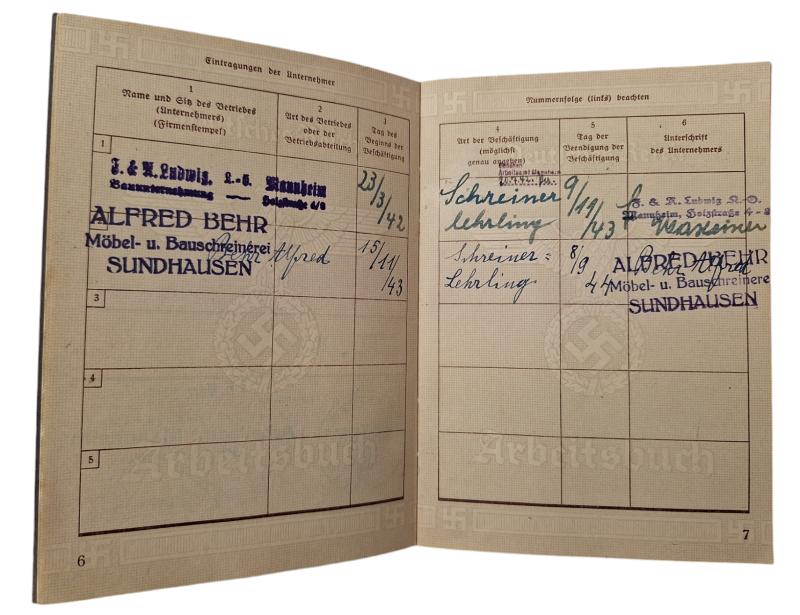 Eintragungen der Unternehmer
1
Name und Sitz des Betriebes
(Unternehmers)
(Firmenstempel)
2
Art des Betriebes
oder der
Betriebsabteilung
3
Tag des
Beginns der
Beschäftigung
1
F. & A. Ludwig, K.-G. Mannheim
Bauunternehmung — Holzstraße 4/8
23/3/42
ALFRED BEHR
Möbel- u. Bauschreinerei
SUNDHAUSEN
Behr Alfred
15/11/43
3
4
5
Arbeitsbuch
6
Nummernfolge (links) beachten
4
Art der Beschäftigung
(möglichst
genau angeben)
5
Tag der
Beendigung der
Beschäftigung
6
Unterschrift
des Unternehmers
Arbeitsamt Mannheim
Schreiner
lehrling
9/11/43
F. & A. Ludwig K.-G.
Mannheim, Holzstraße 4-8
Schreiner=
Lehrling
8/9 44
ALFRED BEHR
Möbel- u. Bauschreinere
SUNDHAUSEN
Behr Alfred
Arbeitsbuch
7